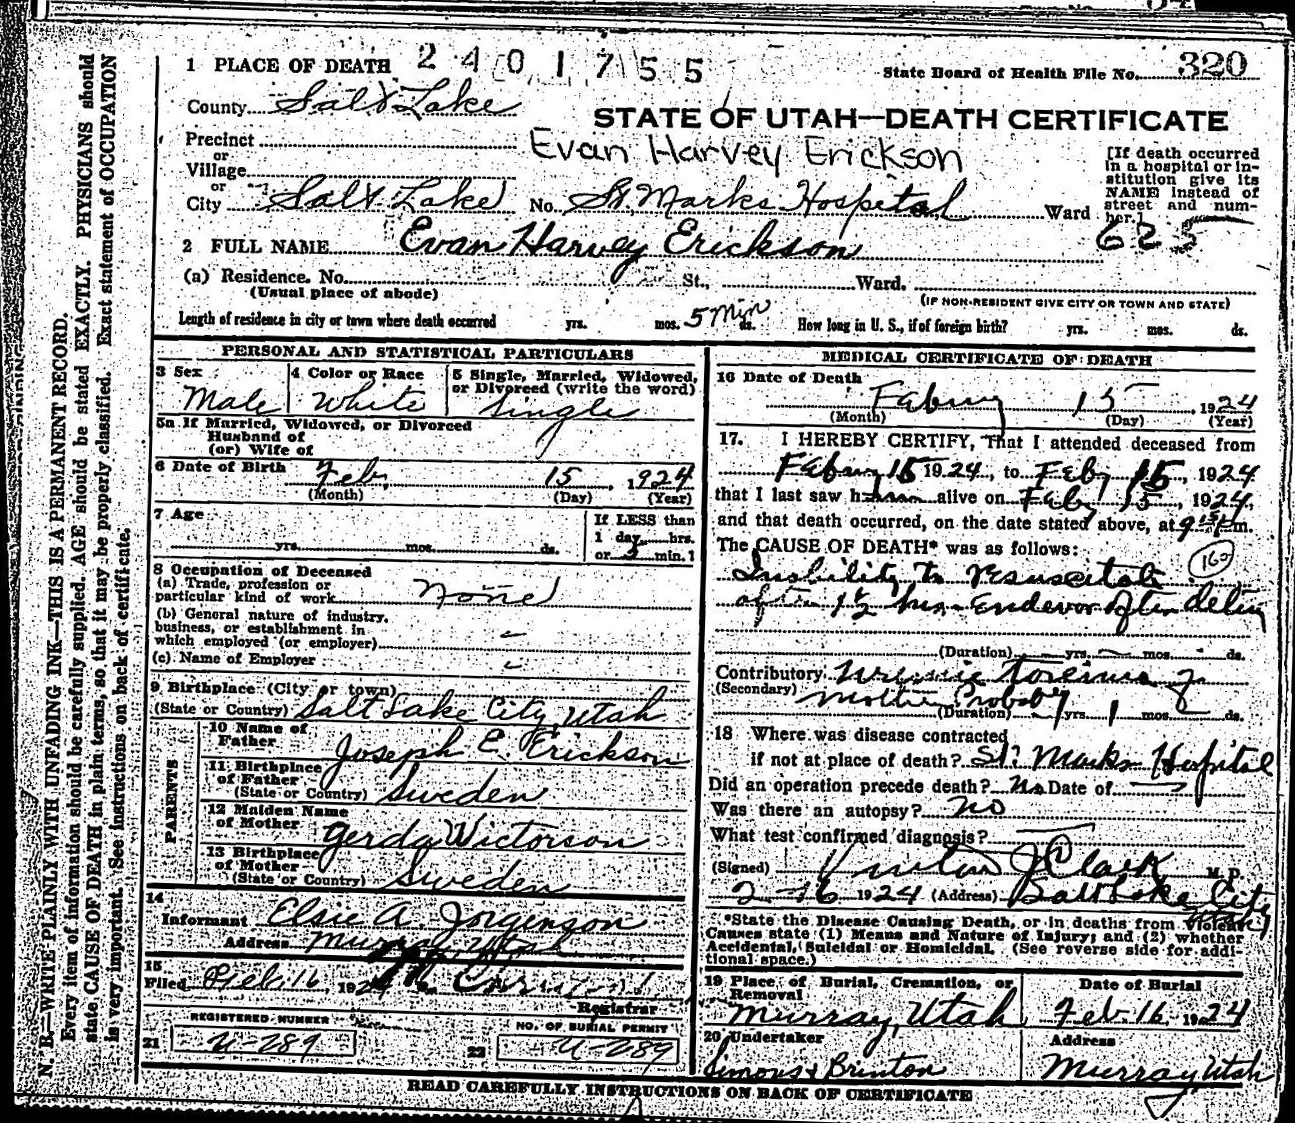 1 PLACE OF DEATH 2401755
State Board of Health File No. 320
County Salt Lake
STATE OF UTAH—DEATH CERTIFICATE
Precinct
Evan Harvey Erickson
or
Village
or
City Salt Lake No. St. Marks Hospital Ward
[If death occurred
in a hospital or in-
stitution give its
NAME instead of
street and num-
ber.]
625
2 FULL NAME Evan Harvey Erickson
(a) Residence. No. St., Ward.
(Usual place of abode)
(IF NON-RESIDENT GIVE CITY OR TOWN AND STATE)
Length of residence in city or town where death occurred yrs. mos. 5 Min ds. How long in U. S., if of foreign birth? yrs. mos. ds.
PERSONAL AND STATISTICAL PARTICULARS
3 Sex
Male
4 Color or Race
White
5 Single, Married, Widowed,
or Divorced (write the word)
Single
5a If Married, Widowed, or Divorced
Husband of
(or) Wife of
6 Date of Birth Feb. 15, 1924
(Month) (Day) (Year)
7 Age
yrs. mos. ds.
If LESS than
1 day, hrs.
or min.?
8 Occupation of Deceased
(a) Trade, profession or
particular kind of work None
(b) General nature of industry,
business, or establishment in
which employed (or employer) –
(c) Name of Employer –
9 Birthplace (City or town)
(State or Country) Salt Lake City, Utah
PARENTS
10 Name of
Father Joseph E. Erickson
11 Birthplace
of Father
(State or Country) Sweden
12 Maiden Name
of Mother Gerda Wictorson
13 Birthplace
of Mother
(State or Country) Sweden
14
Informant Elsie A. Jorgenson
Address Murray, Utah
15
Filed Feb. 16, 1924
Registrar
REGISTERED NUMBER
21 U-289
NO. OF BURIAL PERMIT
22 U-289
MEDICAL CERTIFICATE OF DEATH
16 Date of Death
15, 1924
(Month) (Day) (Year)
17. I HEREBY CERTIFY, That I attended deceased from
15 1924, to Feby 15, 1924
that I last saw h alive on Feby 15, 1924,
and that death occurred, on the date stated above, at 9 m.
The CAUSE OF DEATH* was as follows:
162
Inability to resuscitate
after 1½ hrs. Endevor after
(Duration) yrs. mos. ds.
Contributory
(Secondary) Mother
(Duration) yrs. 1 mos. ds.
18 Where was disease contracted
if not at place of death? St. Marks Hospital
Did an operation precede death? No Date of
Was there an autopsy? no
What test confirmed diagnosis?
(Signed) J Clark M. D.
2-16 1924 (Address) Salt Lake City
Utah
*State the Disease Causing Death, or in deaths from Violent
Causes state (1) Means and Nature of Injury; and (2) whether
Accidental, Suicidal or Homicidal. (See reverse side for addi-
tional space.)
19 Place of Burial, Cremation, or
Removal
Murray, Utah
Date of Burial
Feb. 16, 1924
20 Undertaker
Simons & Brinton
Address
Murray, Utah
READ CAREFULLY INSTRUCTIONS ON BACK OF CERTIFICATE
N. B.—WRITE PLAINLY WITH UNFADING INK—THIS IS A PERMANENT RECORD.
Every item of information should be carefully supplied. AGE should be stated EXACTLY. PHYSICIANS should
state CAUSE OF DEATH in plain terms, so that it may be properly classified. Exact statement of OCCUPATION
is very important. See instructions on back of certificate.